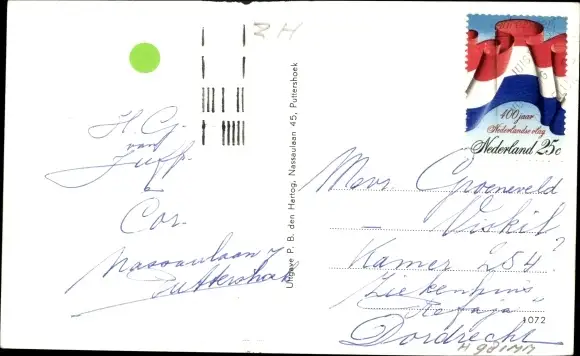 3 H
400 jaar
Nederlandse vlag
Nederland 25c
H. Gr.
van
Juff.
&
Cor.
Nassaulaan 7
Puttershoek
Uitgave P. B. den Hertog, Nassaulaan 45, Puttershoek
Mevr. Groeneveld
– Viskil
Kamer 254?
Ziekenhuis
"Refaja"
Dordrecht
1072